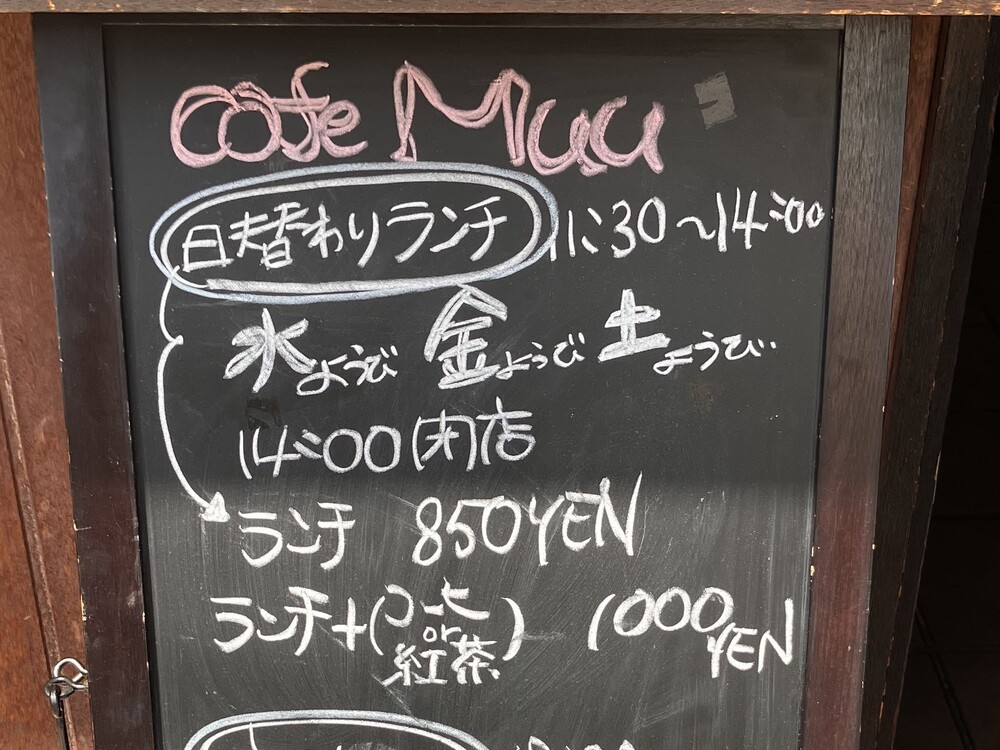 cafe Muu
日替わりランチ 11:30〜14:00
水ようび 金ようび 土ようび
14:00閉店
ランチ 850YEN
ランチ+(コーヒー or 紅茶) 1000YEN